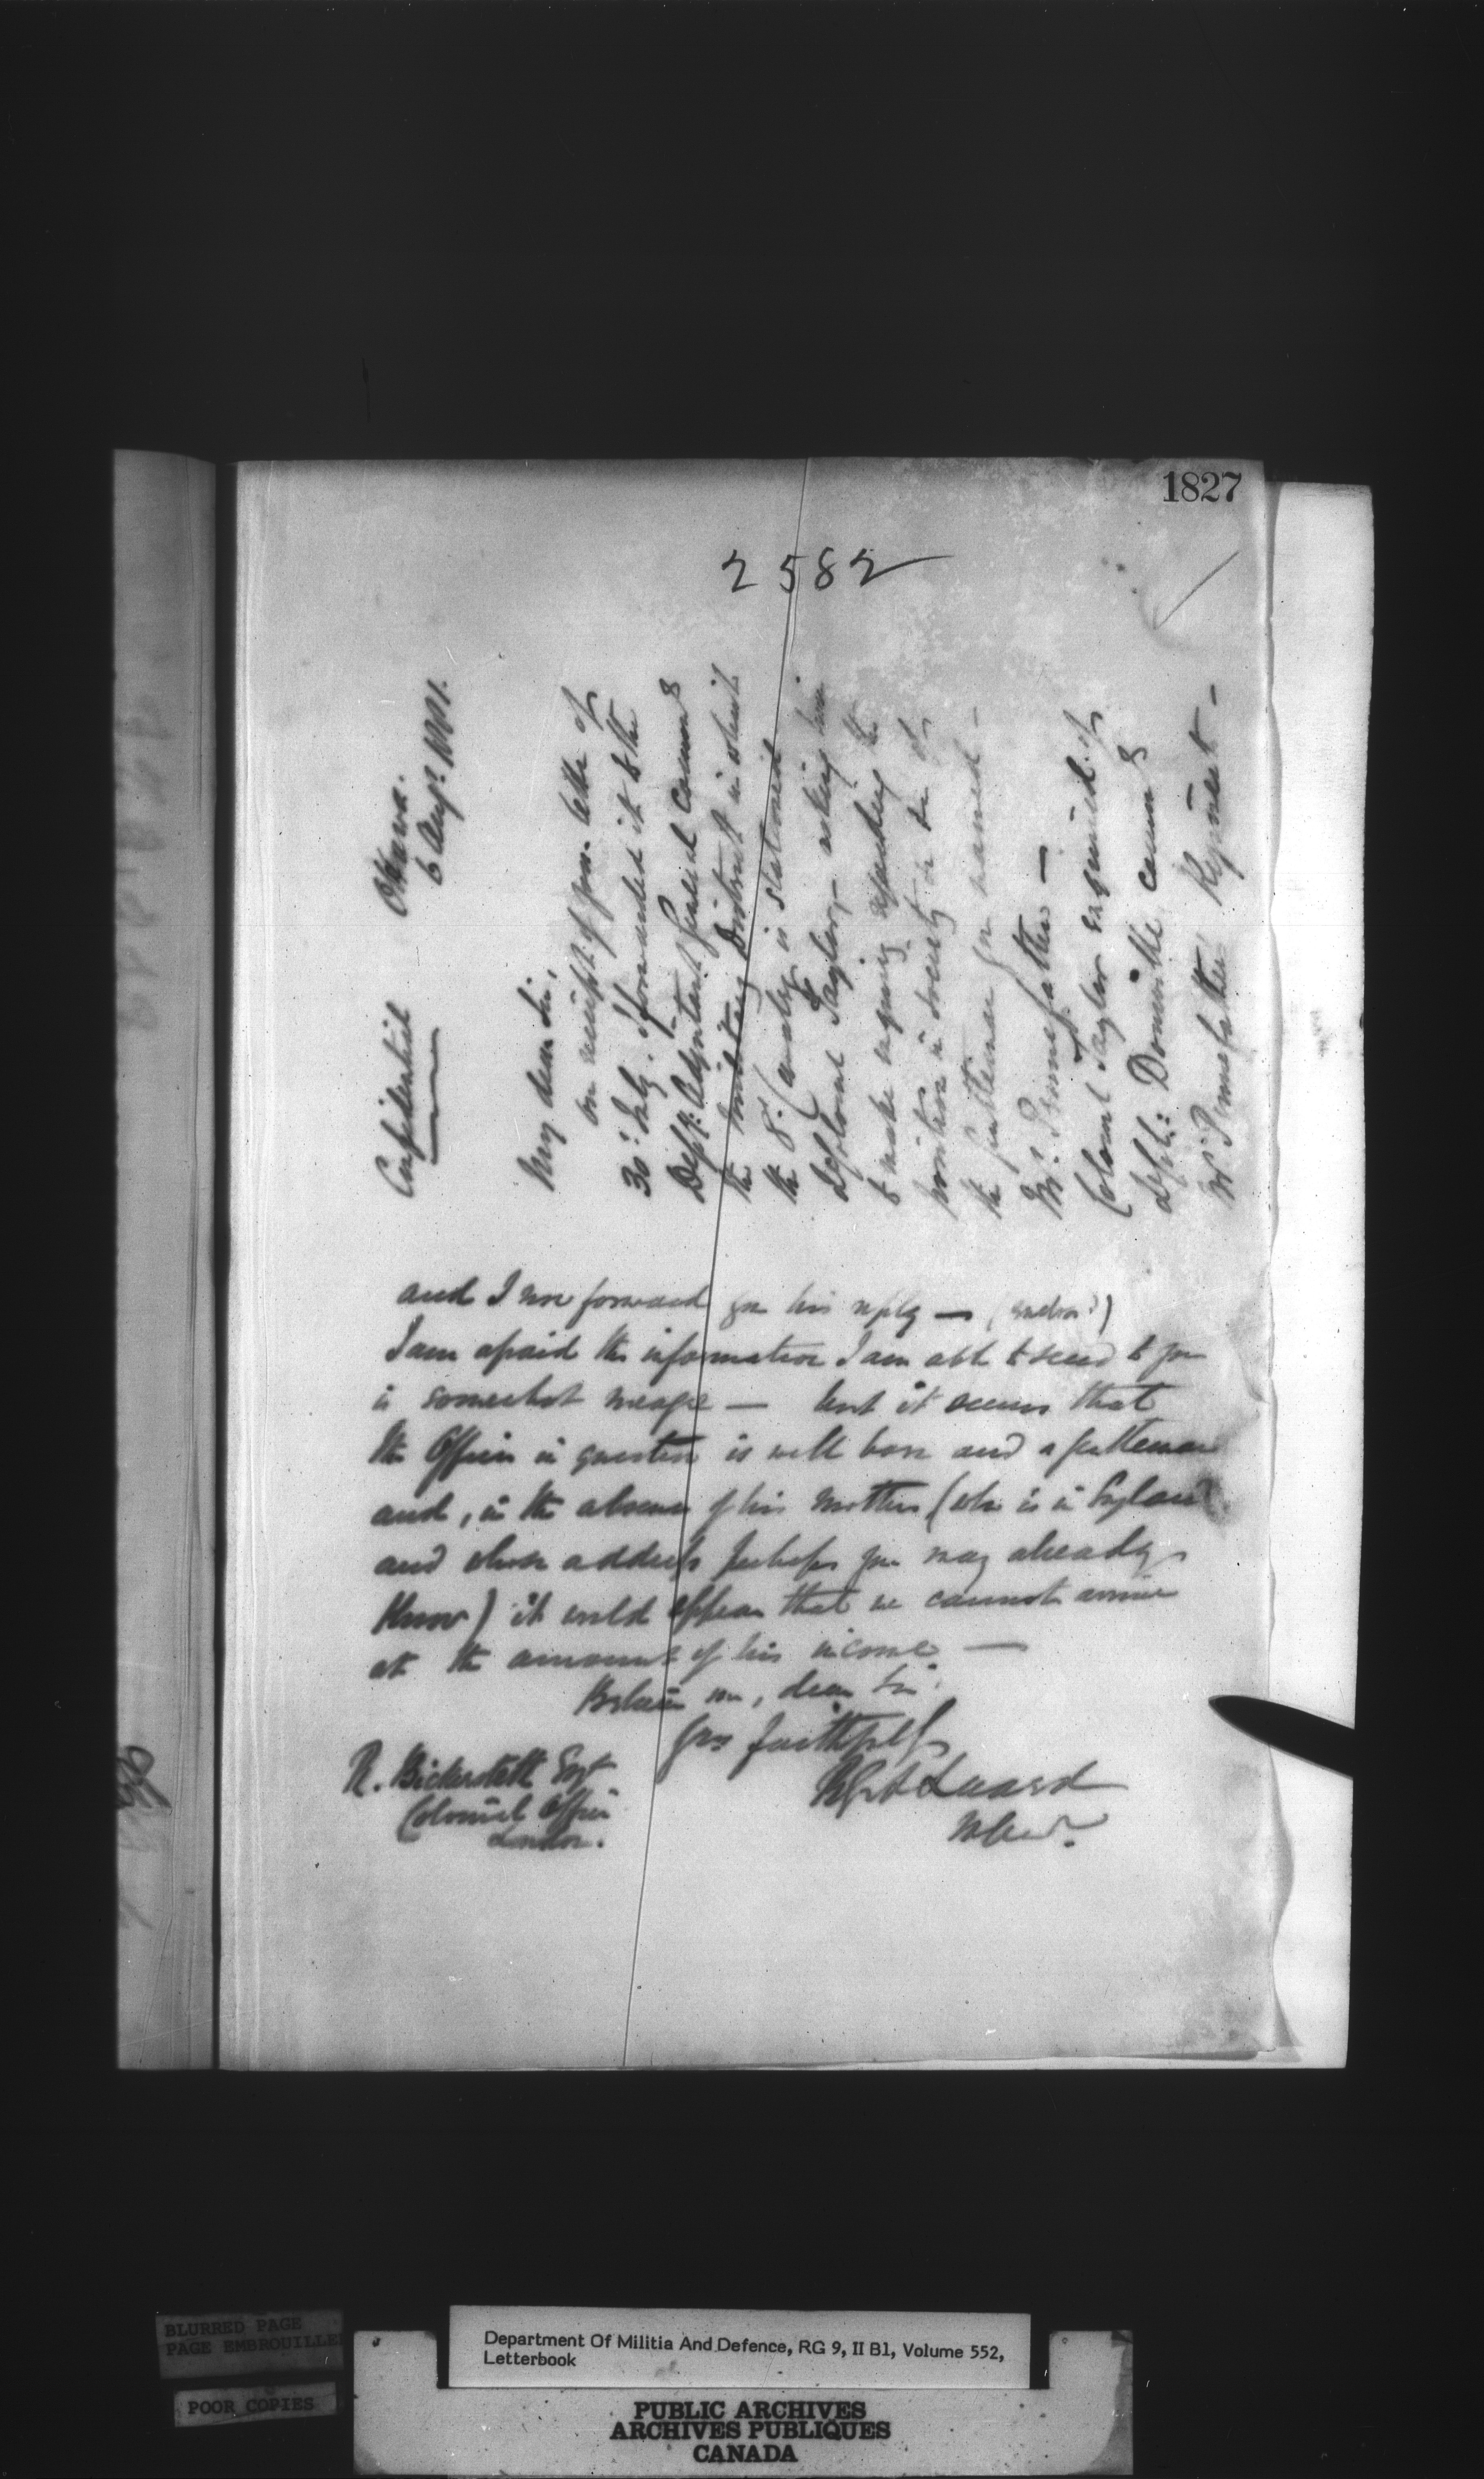 1827
2582
Confidential
Ottawa.
6 Augt. 1881.
My dear Sir,
on receipt of your letter of
30th July. I forwarded it to the
Depy. Adjutant General Command g
the Military District in which
the 8th Cavalry is stationed
Colonel Taylor, asking him
to make inquiry regarding the
position in society &c &c of
the gentleman you named —
Mr.
Colonel Taylor enquired of
Lt. Col: Domville Command g
Mr Regiment —
and I now forward you his reply — (enclosd)
I am afraid the information I am able to send to you
is somewhat meagre — but it seems that
the Officer in question is well born and a gentleman
and, in the absence of his mother (who is in England
and whose address perhaps you may already
know) it would appear that we cannot arrive
at the amount of his income —
Believe me, dear Sir.
Yrs faithfully
Luard
M Genl.
R. Bickersteth Esqr
Colonial Office
London.
BLURRED PAGE
PAGE EMBROUILLEE
POOR COPIES
Department Of Militia And Defence, RG 9, II B1, Volume 552,
Letterbook
PUBLIC ARCHIVES
ARCHIVES PUBLIQUES
CANADA